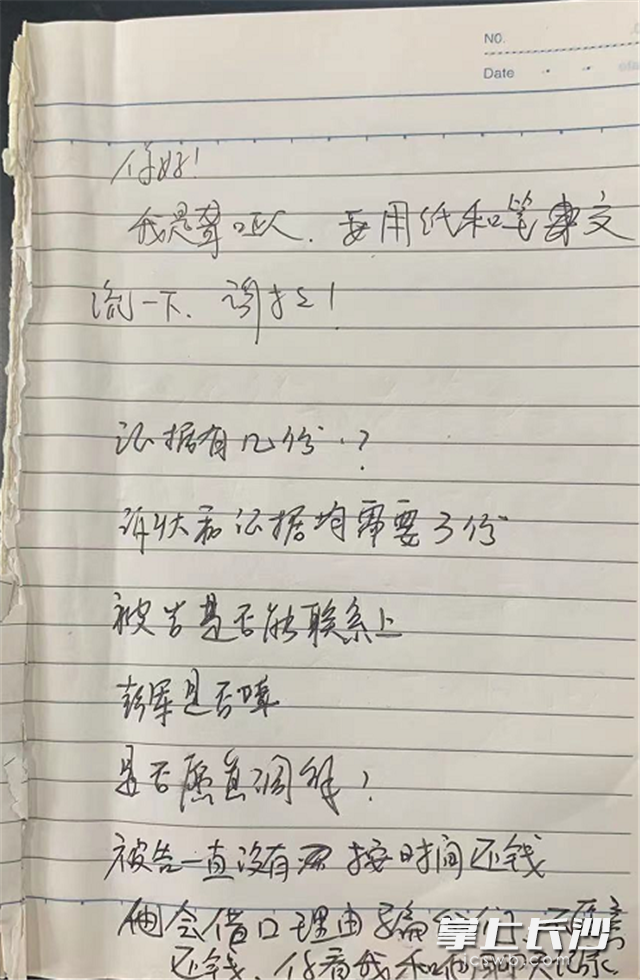 NO.
Date
你好!
我是聋哑人.要用纸和笔来交
流一下.谢谢!
证据有几份.?
诉状和证据均需要3份
被告是否能联系上
彭军是否
是否愿意调解?
被告一直没有按时间还钱
他会借口理由骗
还钱.你看我和
掌上长沙